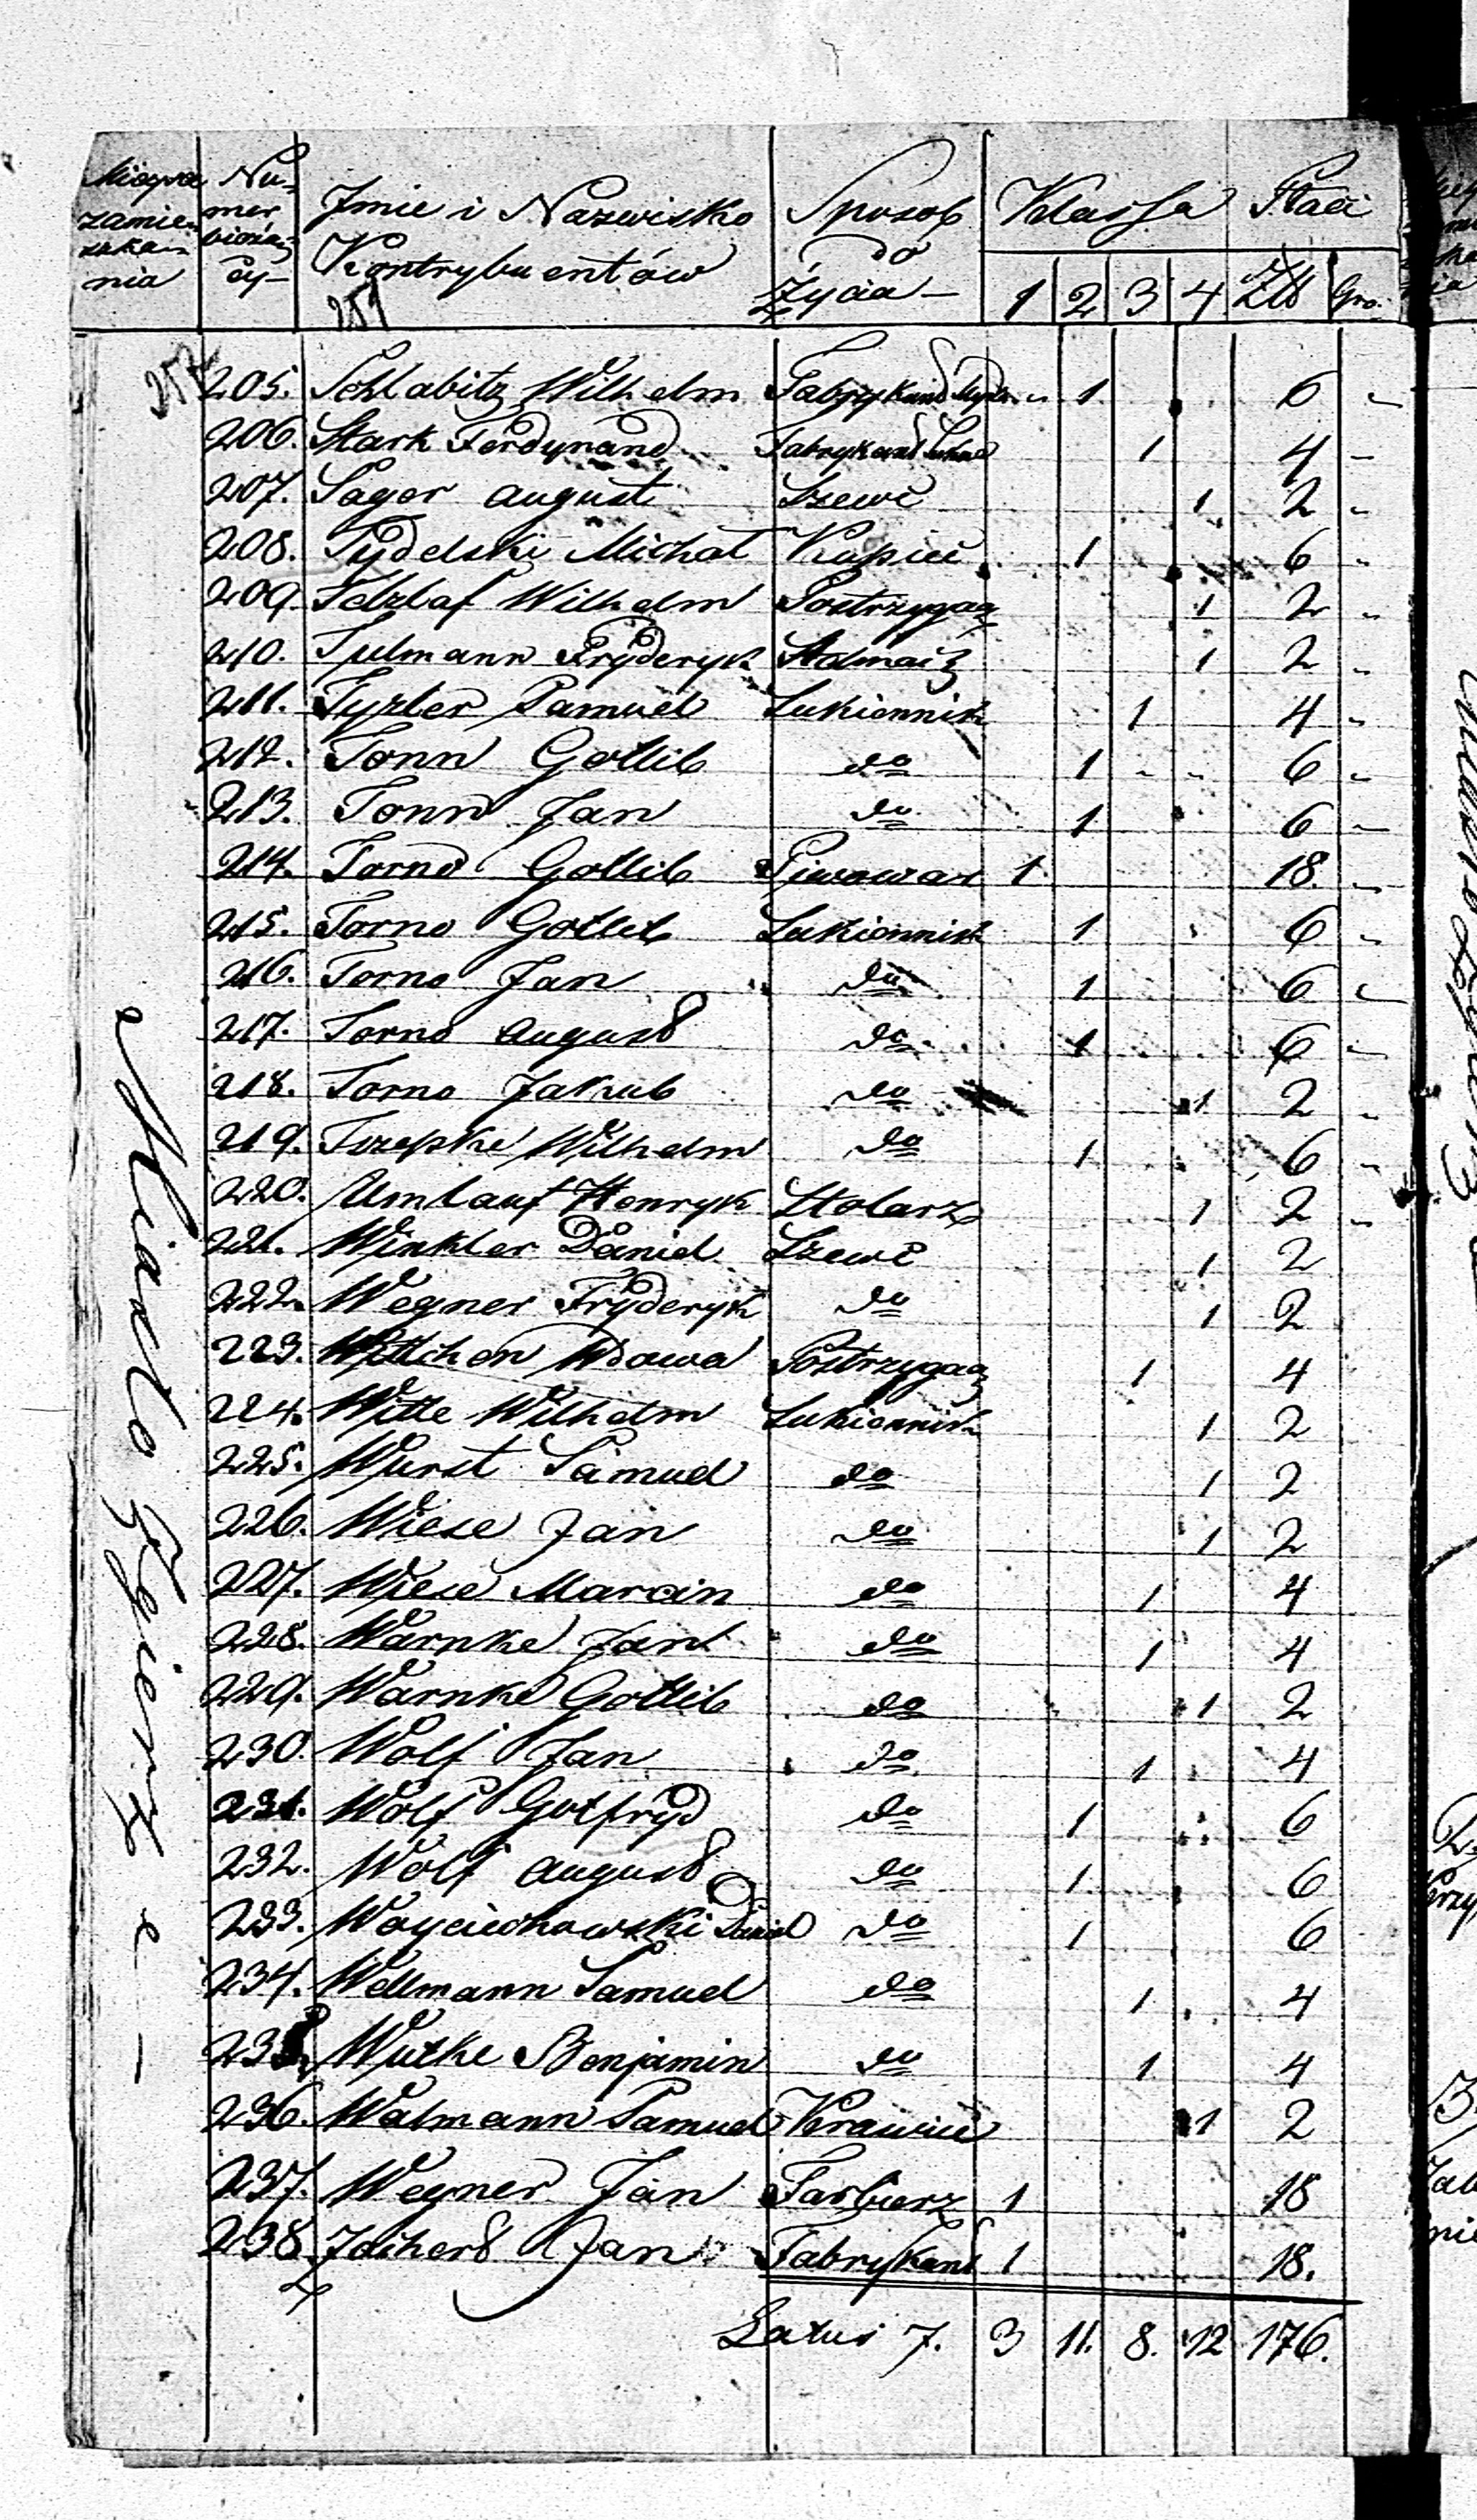 Miejsce zamieszkania Numer bieżący Imie i Nazwisko Kontrybuentów Sposob do Życia Klassa Płaci
1 2 3 4 Złt Gro.
251
205. Schlabitz Wilhelm Fabrykant 1 6 -
206. Stark Ferdynand Fabrykant Sukna 1 4 -
207. Sager August Szewc 1 2 -
208. Tydelski Michał Kupiec 1 6 -
209. Tetzlaf Wilhelm Postrzygacz 1 2 -
210. Tulmann Fryderyk 1 2 -
211. Tyzler Samuel Sukiennik 1 4 -
212. Tonn Gotlib do 1 - - 6 -
213. Tonn Jan do 1 6 -
214. Torno Gotlib Piwowar 1 18. -
215. Torno Gotlib Sukiennik 1 6 -
216. Torno Jan do 1 6 -
217. Torno August do 1 6 -
218. Torno Jakub do 1 2 -
219. Trzepke Wilhelm do 1 6 -
220. Umlauf Henryk Stolarz 1 2 -
221. Winkler Daniel Szewc 1 2
222. Wegner Fryderyk do 1 2
223. Wittichen Wdowa Postrzygacz 1 4
224. Witte Wilhelm Sukiennik 1 2
225. Wurst Samuel do 1 2
226. Wiese Jan do 1 2
227. Wiese Marcin do 1 4
228. Warnke Jan do 1 4
229. Warnke Gotlib do 1 2
230. Wolf Jan do 1 4
231. Wolf Gotfryd do 1 6
232. Wolf August do 1 6
233. Woyciechowski Daniel do 1 6
234. Wellmann Samuel do 1 4
235. Wutke Benjamin do 1 4
236. Walmann Samuel Krawiec 1 2
237. Wegner Jan Farbierz 1 18
238. Zachert Jan Fabrykant 1 18.
Latus 7. 3 11. 8. 12 176.
Miasto Zgierz